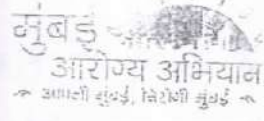 मुंबई
आरोग्य अभियान
आपली मुंबई, निरोगी मुंबई